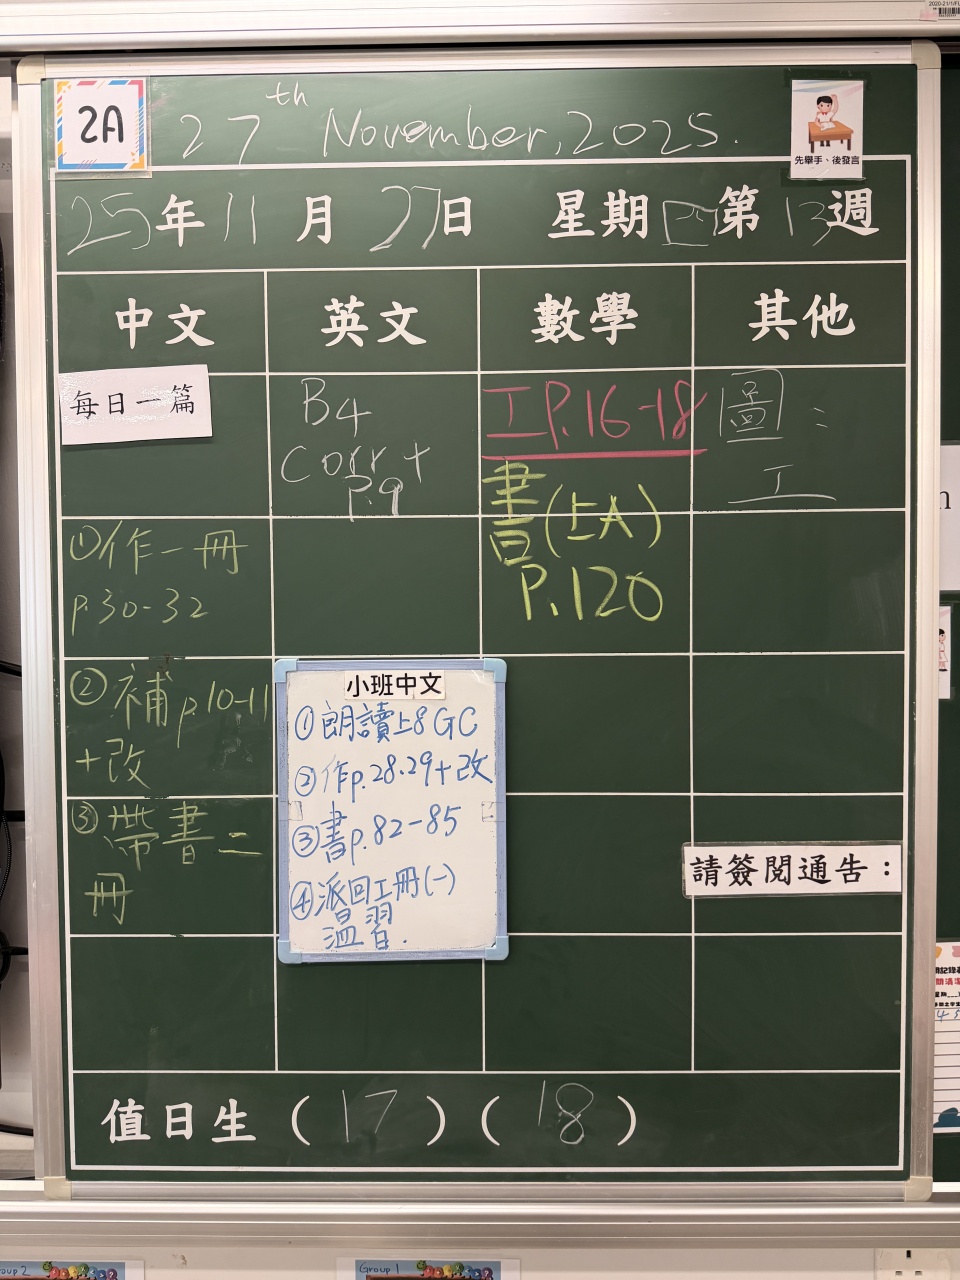 2A
27th November, 2025.
先舉手、後發言
25年11月27日 星期四第13週
中文 英文 數學 其他
每日一篇
①作一冊
p.30-32
②補p.10-11
+改
③帶書二
冊
B4
Corr +
P.9
工P.16-18
書(上A)
P.120
圖:
工
小班中文
①朗讀上8GC
②作p.28.29+改
③書p.82-85
④派回工冊(一)
溫習.
請簽閱通告:
值日生(17)(18)
Group 1